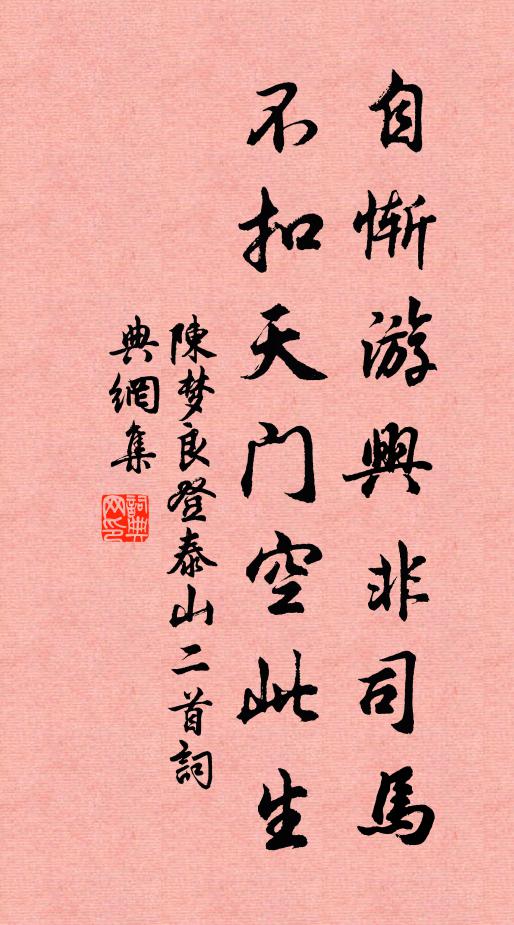 自慚游興非司馬
不扣天门空此生
陳梦良登泰山二首詞
典網集
詞典网印